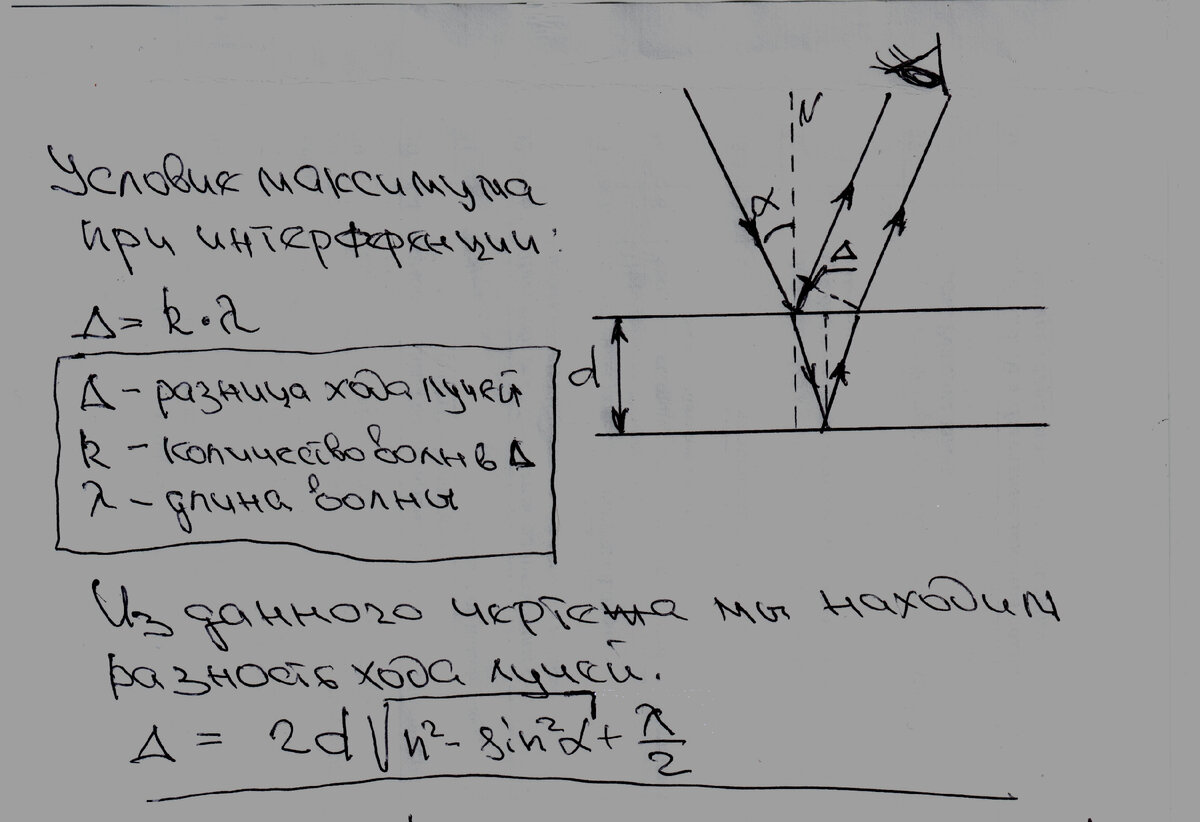 Условие максимума
при интерференции:
Δ = k·λ
Δ – разница хода лучей
k – количество волн в Δ
λ – длина волны
N
α
Δ
d
Из данного чертежа мы находим
разность хода лучей.
Δ = 2d√(n² - sin²α) + λ/2